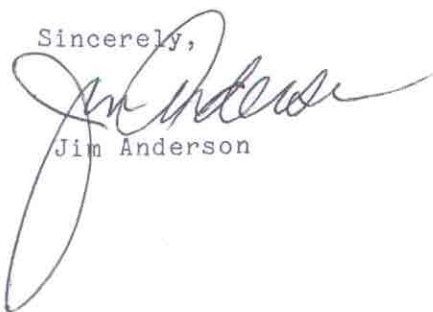 Sincerely,
Jim Anderson
Jim Anderson